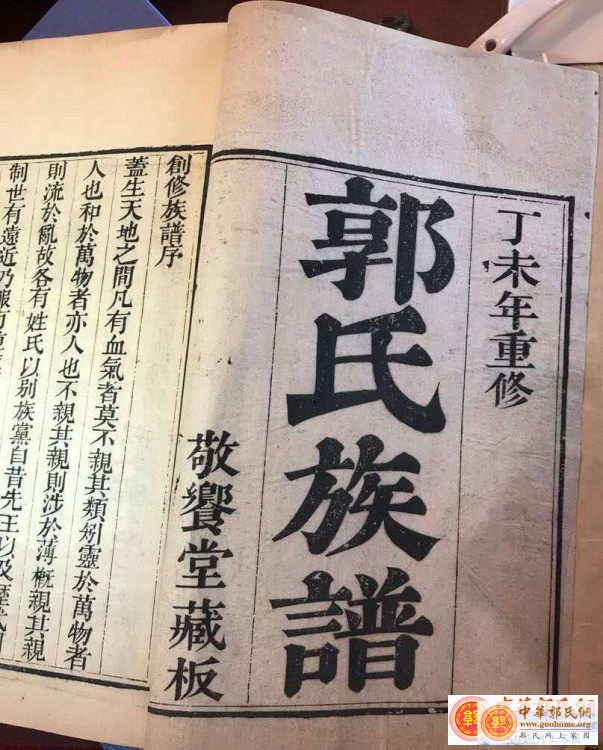 丁未年重修
郭氏族譜
敬饗堂藏板
創修族譜序
蓋生天地之間凡有血氣者莫不親其類矧靈於萬物者
人也和於萬物者亦人也不親其親則涉於薄概親其親
則流於亂故各有姓氏以別族黨自昔先王以及歷代
制世有遠近乃服有
中華郭氏網
www.guohome.org
郭氏網上家園